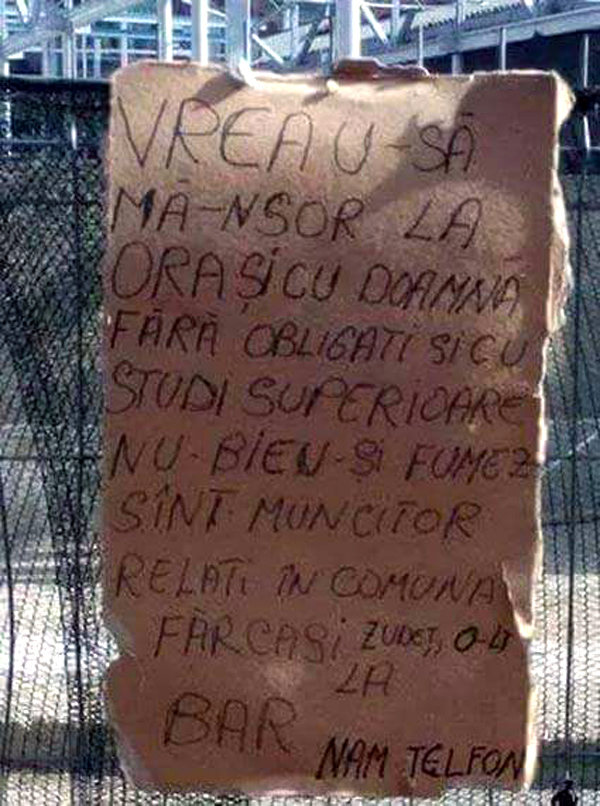 VREAU-SĂ
MĂ-NSOR LA
ORAȘI CU DOAMNĂ
FĂRĂ OBLIGATI SI CU
STUDI SUPERIOARE
NU-BIEU-ȘI FUMEZ
SÎNT MUNCITOR
RELATI ÎN COMUNA
FĂRCAȘI ZUDEȚ, O-LT
LA
BAR
NAM TELFON